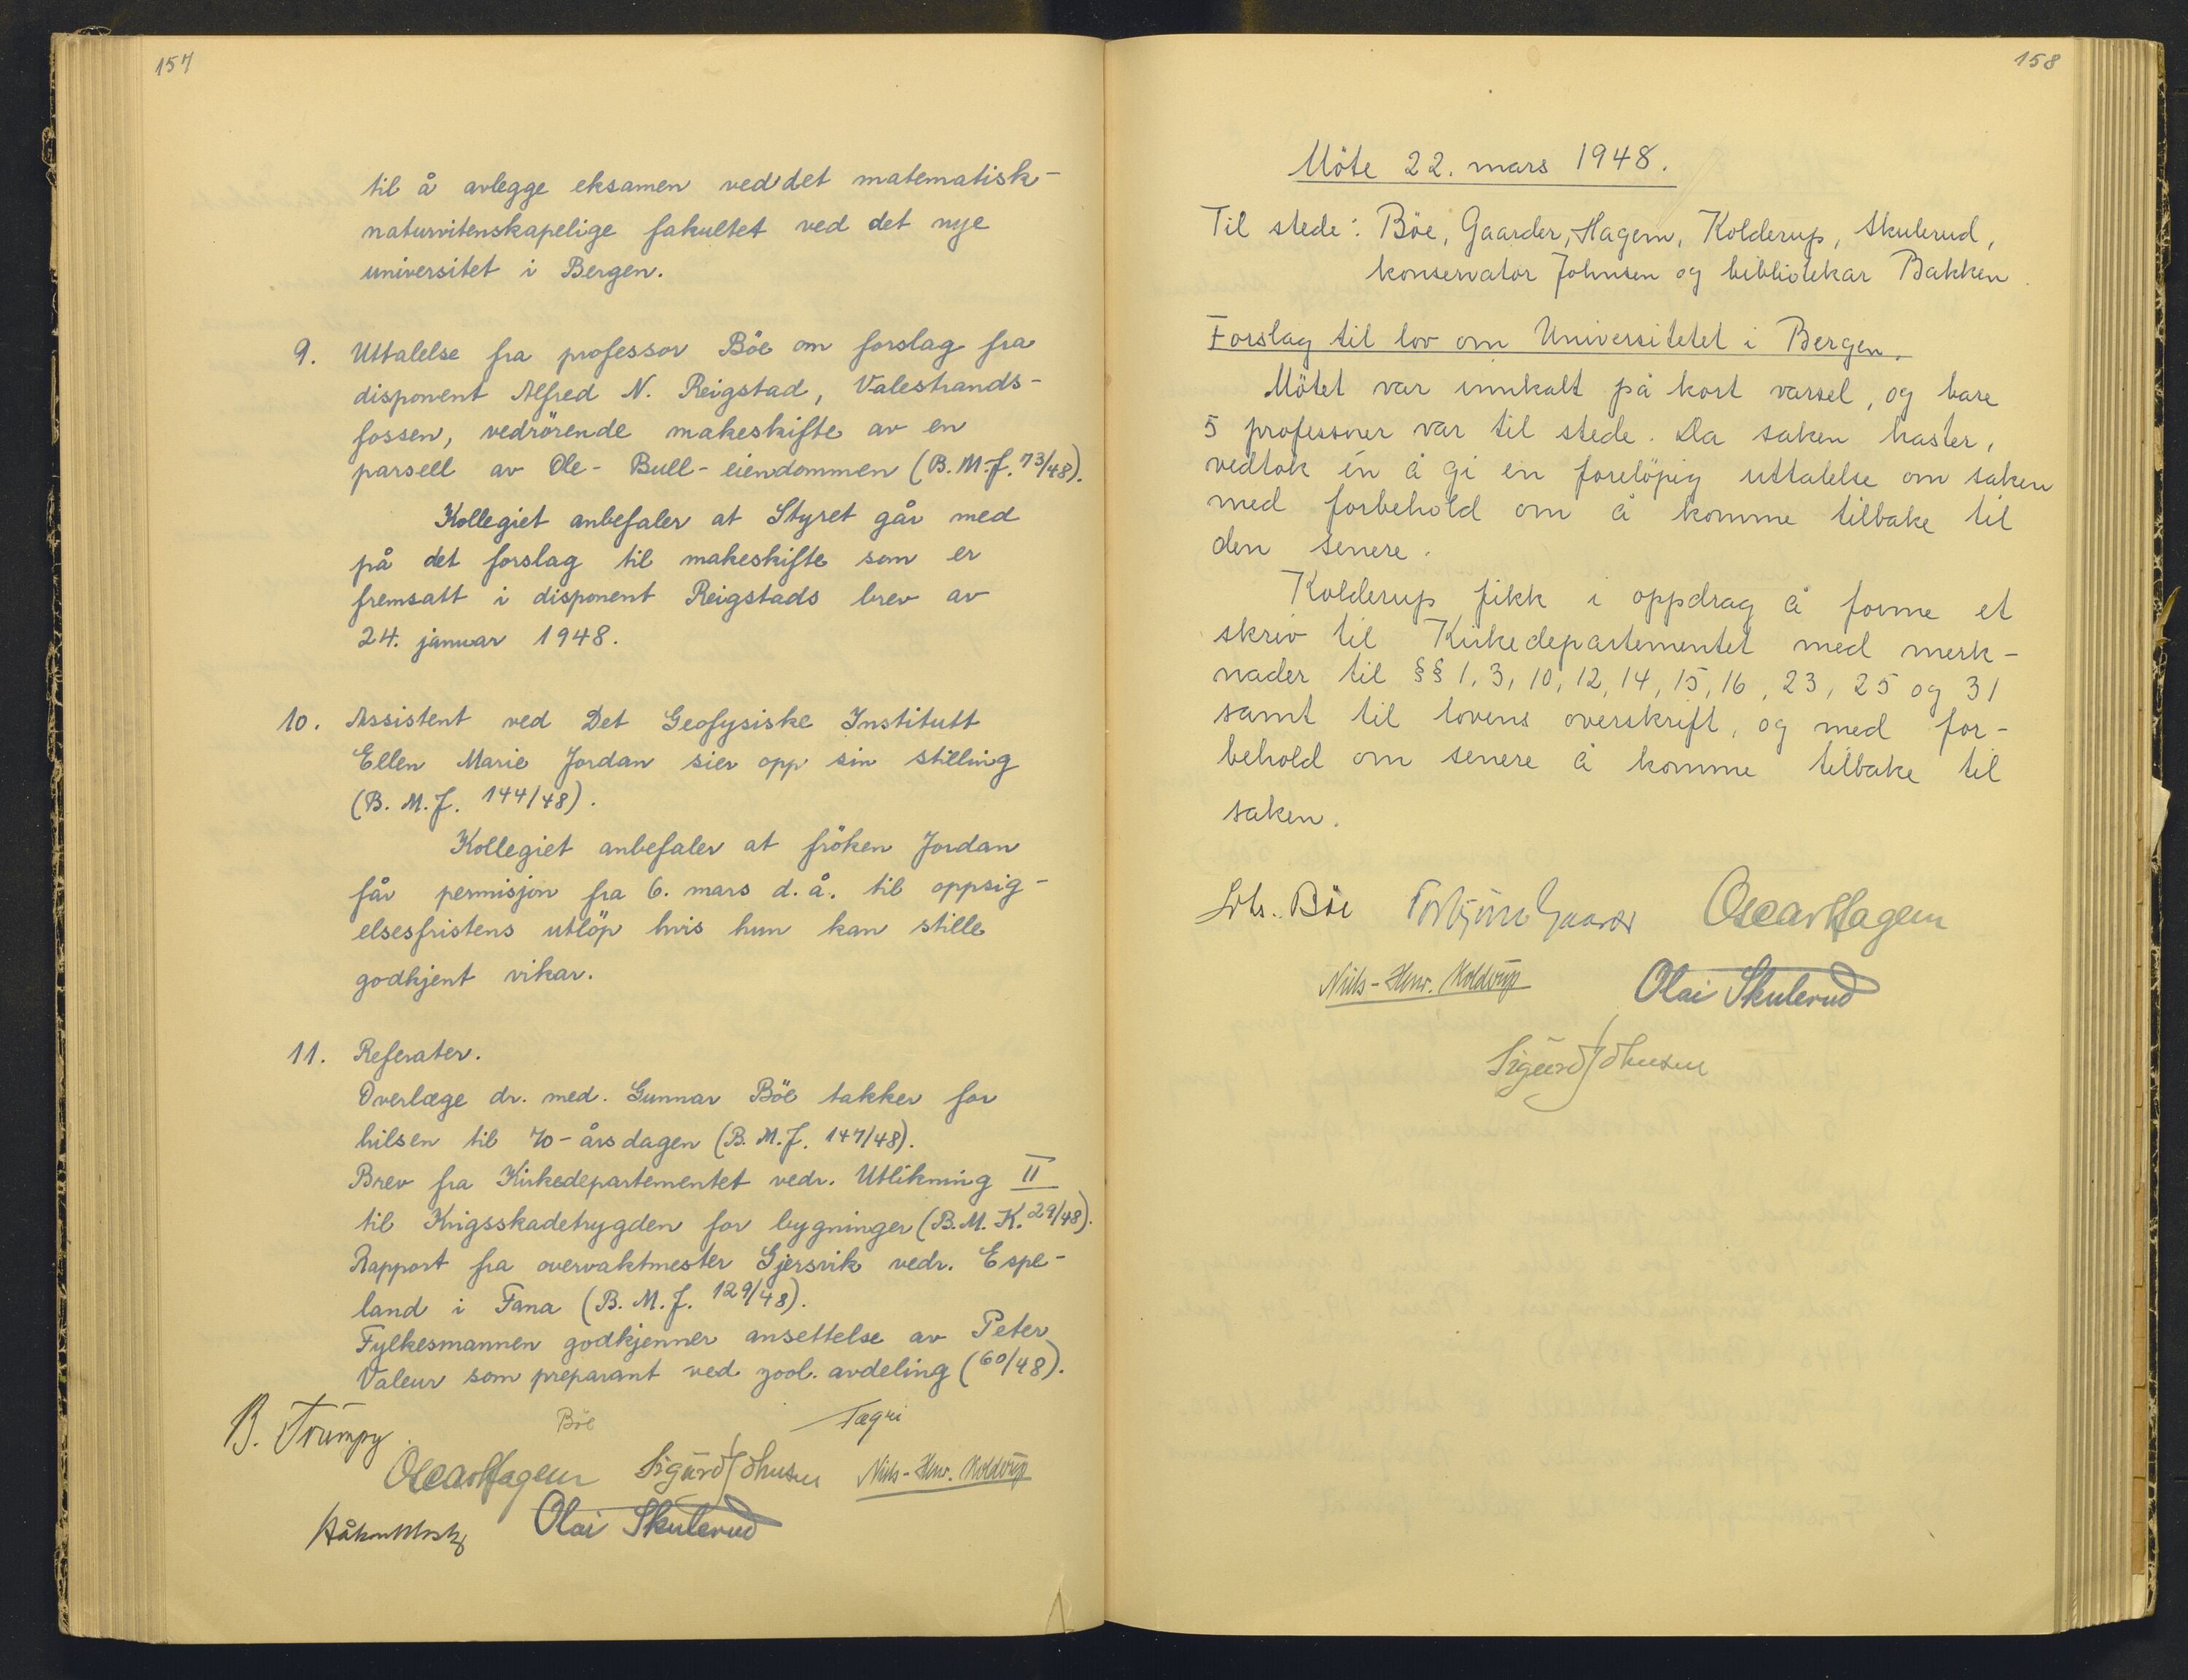 157
til å avlegge eksamen ved det matematisk-
naturvitenskapelige fakultet ved det nye
universitet i Bergen.
9. Uttalelse fra professor Böe om forslag fra
disponent Alfred N. Reigstad, Valestrands-
fossen, vedrörende makeskifte av en
parsell av Ole-Bull-eiendommen (B.M.J. 73/48).
Kollegiet anbefaler at Styret går med
på det forslag til makeskifte som er
fremsatt i disponent Reigstads brev av
24. januar 1948.
10. Assistent ved Det Geofysiske Institutt
Ellen Marie Jordan sier opp sin stilling
(B.M.J. 144/48).
Kollegiet anbefaler at fröken Jordan
får permisjon fra 6. mars d.å. til oppsig-
elsesfristens utlöp hvis hun kan stille
godkjent vikar.
11. Referater.
Overlæge dr. med. Gunnar Böe takker for
hilsen til 70-årsdagen (B.M.J. 147/48).
Brev fra Kirkedepartementet vedr. Utlikning II
til Krigsskadetrygden for bygninger (B.M.K. 29/48).
Rapport fra overvaktmester Gjersvik vedr. Espe-
land i Fana (B.M.J. 129/48).
Fylkesmannen godkjenner ansettelse av Peter
Valeur som preparant ved zool. avdeling (60/48).
B. Trumpy Böe Fægri
Oscar Hagem Sigurd Johnsen Niels-Henr. Kolderup
Olai Skulerud
158
Möte 22. mars 1948.
Til stede: Böe, Gaarder, Hagem, Kolderup, Skulerud,
konservator Johnsen og bibliotekar Bakken
Forslag til lov om Universitetet i Bergen.
Mötet var innkalt på kort varsel, og bare
5 professorer var til stede. Da saken haster,
vedtok en å gi en forelöpig uttalelse om saken
med forbehold om å komme tilbake til
den senere.
Kolderup fikk i oppdrag å forme et
skriv til Kirkedepartementet med merk-
nader til §§ 1, 3, 10, 12, 14, 15, 16, 23, 25 og 31
samt til lovens overskrift, og med for-
behold om senere å komme tilbake til
saken.
Johs. Böe Torbjörn Gaarder Oscar Hagem
Niels-Henr. Kolderup Olai Skulerud
Sigurd Johnsen